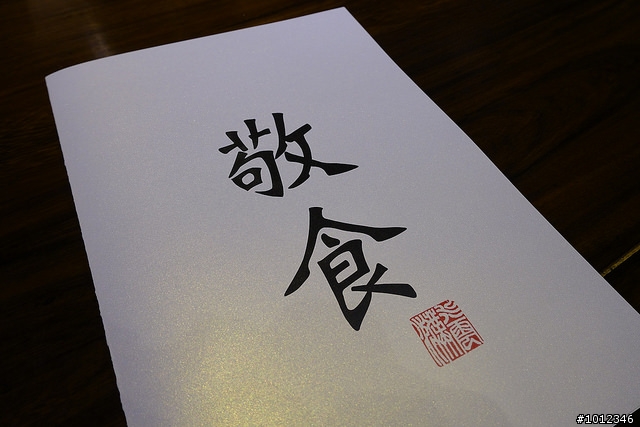 敬
食
#1012346